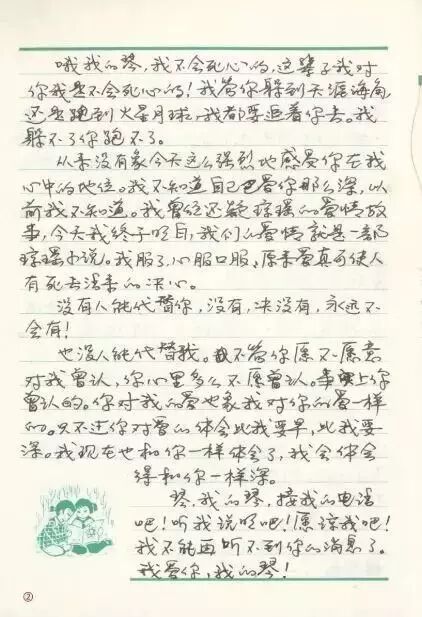 哦我的琴，我不会死心的，这辈子我对
你我是不会死心的！我管你躲到天涯海角
还是跑到火星月球，我都要追着你去。我
躲不了你跑不了。
从来没有象今天这么强烈地感受你在我
心中的地位。我不知道自己爱你那么深，以
前我不知道。我曾经还疑琼瑶的爱情故
事，今天我终于明白，我们的爱情就是一部
琼瑶小说。我服了，心服口服，原来爱真可使人
有死去活来的决心。
没有人能代替你，没有，决没有，永远不
会有！
也没人能代替我。不管你愿不愿意
对我曾认，你心里多么不愿曾认。事实上你
曾认的。你对我的爱也象我对你的爱一样
的。只不过你对爱的体会比我要早，比我要
深。我现在也和你一样体会了，我会体会
得和你一样深。
琴，我的琴，接我的电话
吧！听我说明吧！原谅我吧！
我不能再听不到你的消息了。
我爱你，我的琴！
②